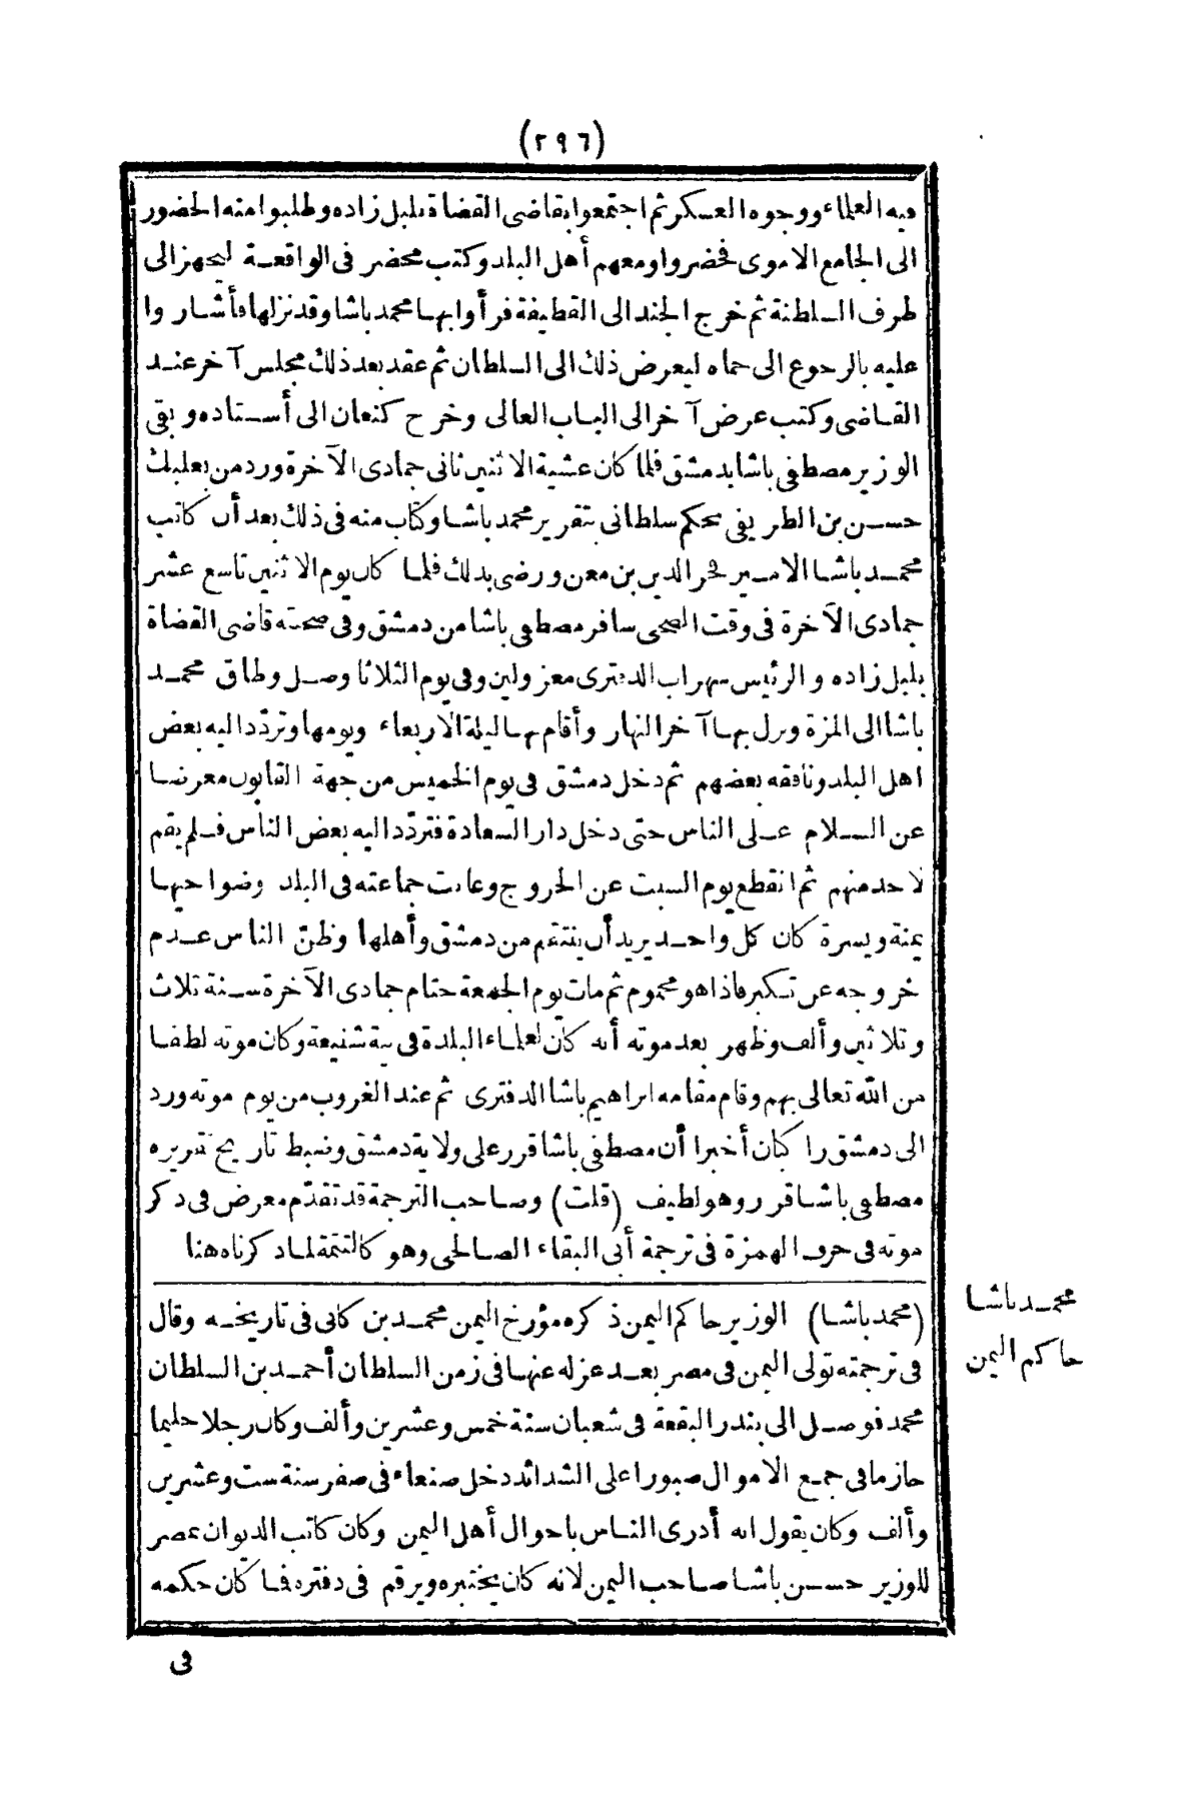 (٢٩٦)
فيه العلماء ووجوه العسكر ثم اجتمعوا بقاضى القضاة بلبل زاده وطلبوا منه الحضور
الى الجامع الاموى فحضروا ومعهم أهل البلد وكتب محضر فى الواقعة ليجهز الى
طرف السلطنة ثم خرج الجند الى القطيفة فرأوا بها محمد باشا وقد نزلها فأشاروا
عليه بالرجوع الى حماه ليعرض ذلك الى السلطان ثم عقد بعد ذلك مجلس آخر عند
القاضى وكتب عرض آخر الى الباب العالى وخرج كنعان الى أستاده وبقى
الوزير مصطفى باشا بدمشق فلما كان عشية الاثنين ثانى جمادى الآخرة ورد من بعلبك
حسن بن الطريفى بحكم سلطانى بتقرير محمد باشا وكتاب منه فى ذلك بعد أن كاتب
محمد باشا الامير فخر الدين بن معن ورضى بذلك فلما كان يوم الاثنين تاسع عشر
جمادى الآخرة فى وقت الضحى سافر مصطفى باشا من دمشق وفى صحبته قاضى القضاة
بلبل زاده والرئيس سهراب الدفترى معزولين وفى يوم الثلاثا وصل وطاق محمد
باشا الى المزة ونزل بها آخر النهار وأقام بها ليلة الاربعاء ويومها وتردّد اليه بعض
اهل البلد ونافقه بعضهم ثم دخل دمشق فى يوم الخميس من جهة القابون معرضا
عن السلام على الناس حتى دخل دار السعادة فتردّد اليه بعض الناس فلم يقم
لاحد منهم ثم انقطع يوم السبت عن الخروج وعاثت جماعته فى البلد وضواحيها
يمنة ويسرة كان كل واحد يريد أن ينتقم من دمشق وأهلها وظنّ الناس عدم
خروجه عن تكبر فاذا هو محموم ثم مات يوم الجمعة ختام جمادى الآخرة سنة ثلاث
وثلاثين وألف وظهر بعد موته أنه كان لعلماء البلدة فى نية شنيعة وكان موته لطفا
من الله تعالى بهم وقام مقامه ابراهيم باشا الدفترى ثم عند الغروب من يوم موته ورد
الى دمشق راكبان أخبرا أن مصطفى باشا قرر على ولاية دمشق وضبط تاريخ تقريره
مصطفى باشا قرر وهو لطيف (قلت) وصاحب الترجمة قد تقدّم معرض فى ذكر
موته فى حرف الهمزة فى ترجمة أبى البقاء الصالحى وهو كالتتمة لما ذكرناه هنا
(محمد باشا) الوزير حاكم اليمن ذكره مؤرخ اليمن محمد بن كانى فى تاريخه وقال
فى ترجمته تولى اليمن فى مصر بعد عزله عنها فى زمن السلطان أحمد بن السلطان
محمد فوصل الى بندر البقعة فى شعبان سنة خمس وعشرين وألف وكان رجلا حليما
حازما فى جمع الاموال صبورا على الشدائد دخل صنعاء فى صفر سنة ست وعشرين
وألف وكان يقول انه أدرى الناس باحوال أهل اليمن وكان كاتب الديوان بمصر
للوزير حسن باشا صاحب اليمن لانه كان يختبره ويرقم فى دفتره فما كان حكمه
محمد باشا
حاكم اليمن
فى